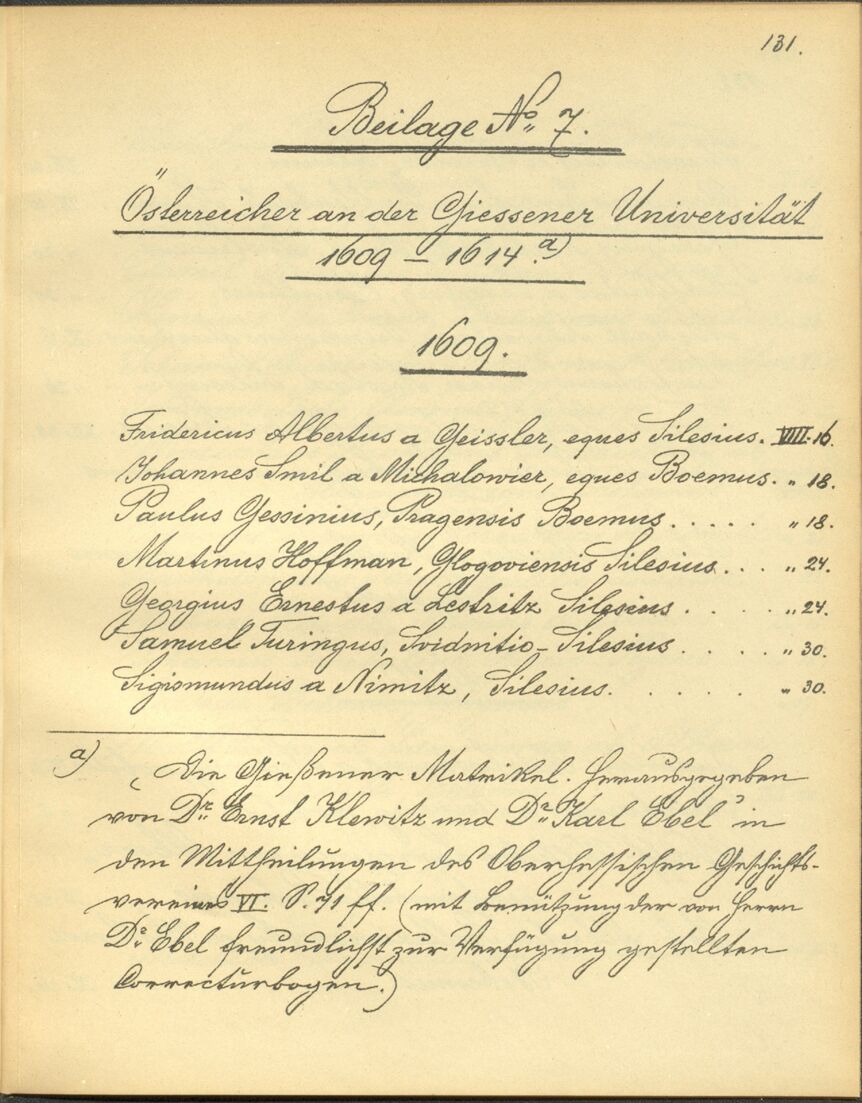 131.
Beilage No. 7.
Österreicher an der Giessener Universität
1609 – 1614. a)
1609.
Fridericus Albertus a Geissler, eques Silesius. VIII. 16.
Johannes Smil a Michalowicz, eques Boemus. „ 18.
Paulus Gessinius, Pragensis Boemus ..... „ 18.
Martinus Hoffman, Glogoviensis Silesius ... „ 24.
Georgius Ernestus a Lestritz Silesius .... „ 24.
Samuel Turingus, Svidnitio-Silesius .... „ 30.
Sigismundus a Nimitz, Silesius. .... „ 30.
a) „Die Gießener Matrikel. Herausgegeben
von Dr. Ernst Klewitz und Dr. Karl Ebel" in
den Mittheilungen des Oberhessischen Geschichts-
vereines VI. S. 71 ff. (mit Benützung der von Herrn
Dr. Ebel freundlichst zur Verfügung gestellten
Correcturbogen.)